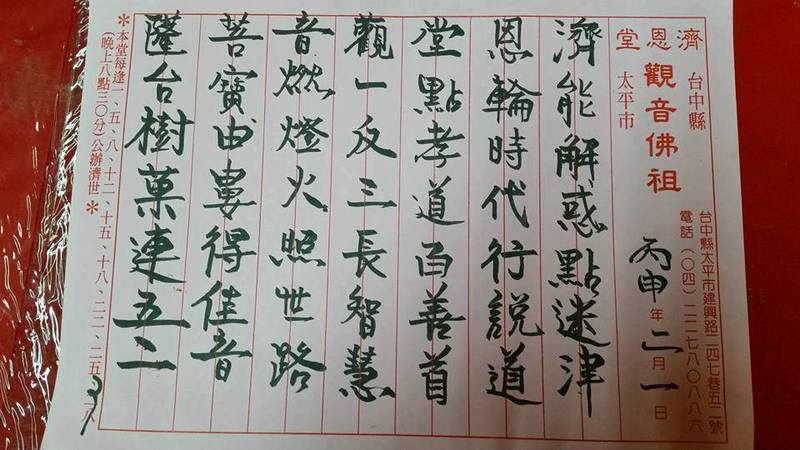 台中縣太平市建興路二四七巷五二號
電話（〇四）二二七八〇八八六
台中縣
太平市
濟恩堂
觀音佛祖
丙申年二月一日
濟能解惑點迷津
恩輪時代行說道
堂點孝道百善首
觀一反三長智慧
音燃燈火照世路
菩寶由婁得佳音
薩台樹菓連五二
＊本堂每逢一、五、八、十二、十五、十八、二二、二五、
（晚上八點三〇分）公辦濟世＊